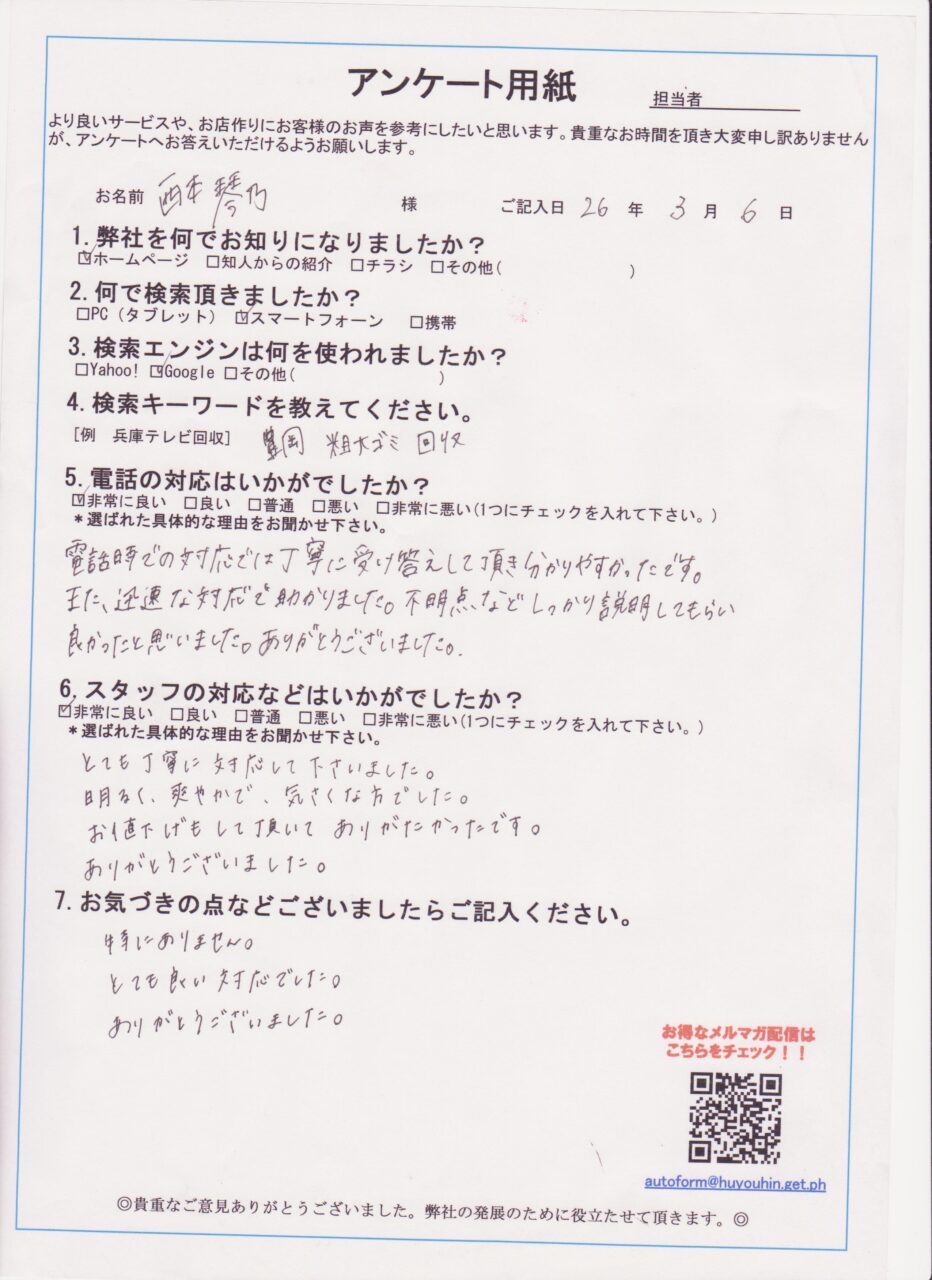 アンケート用紙
担当者
より良いサービスや、お店作りにお客様のお声を参考にしたいと思います。貴重なお時間を頂き大変申し訳ありません
が、アンケートへお答えいただけるようお願いします。
お名前 西本 琴乃 様 ご記入日 26 年 3 月 6 日
1. 弊社を何でお知りになりましたか？
☑ホームページ □知人からの紹介 □チラシ □その他( )
2. 何で検索頂きましたか？
□PC（タブレット） ☑スマートフォーン □携帯
3. 検索エンジンは何を使われましたか？
□Yahoo! ☑Google □その他( )
4. 検索キーワードを教えてください。
[例 兵庫テレビ回収] 豊岡 粗大ゴミ 回収
5. 電話の対応はいかがでしたか？
☑非常に良い □良い □普通 □悪い □非常に悪い(1つにチェックを入れて下さい。)
＊選ばれた具体的な理由をお聞かせ下さい。
電話時での対応では丁寧に受け答えして頂き分かりやすかったです。
また、迅速な対応で助かりました。不明点などしっかり説明してもらい
良かったと思いました。ありがとうございました。
6. スタッフの対応などはいかがでしたか？
☑非常に良い □良い □普通 □悪い □非常に悪い(1つにチェックを入れて下さい。)
＊選ばれた具体的な理由をお聞かせ下さい。
とても丁寧に対応して下さいました。
明るく、爽やかで、気さくな方でした。
お値下げもして頂いて ありがたかったです。
ありがとうございました。
7. お気づきの点などございましたらご記入ください。
特にありません。
とても良い対応でした。
ありがとうございました。
お得なメルマガ配信は
こちらをチェック！！
autoform@huyouhin.get.ph
◎貴重なご意見ありがとうございました。弊社の発展のために役立たせて頂きます。◎